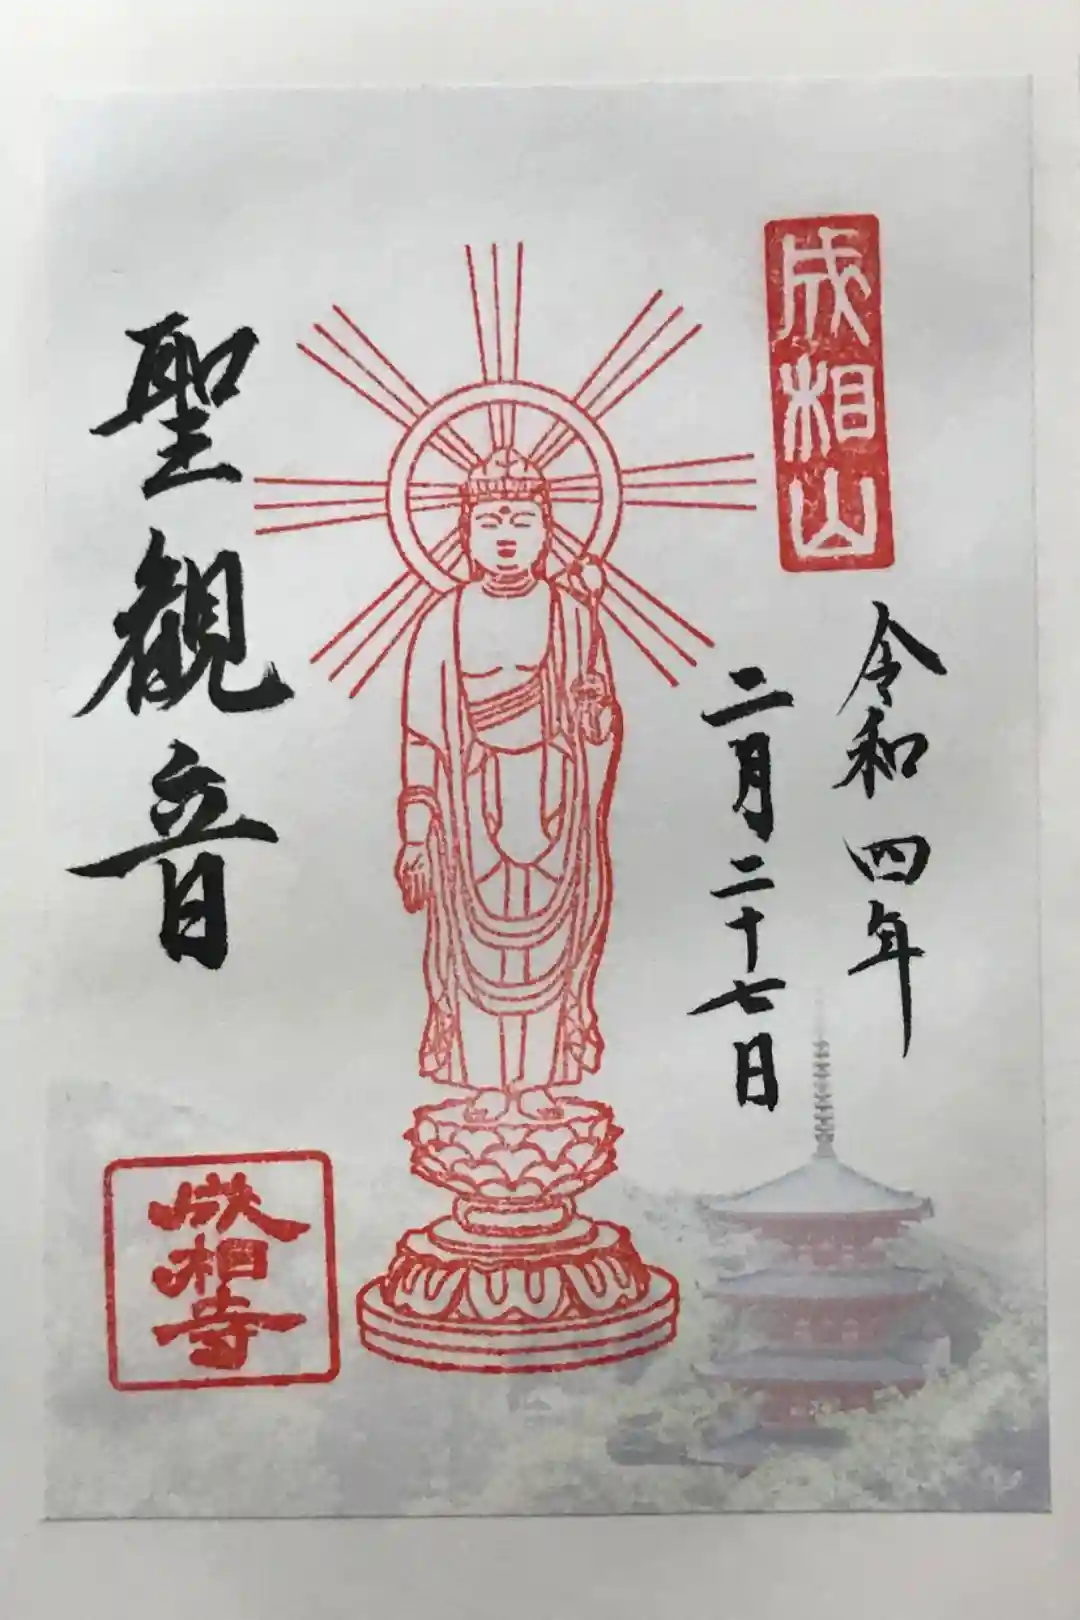 成相山
令和四年
二月二十七日
聖観音
成相寺